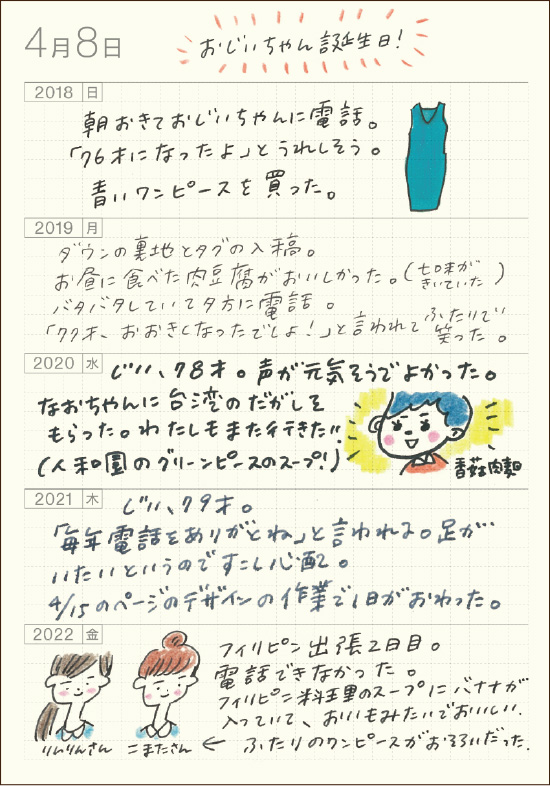 4月8日
おじいちゃん誕生日!
2018 日
朝おきておじいちゃんに電話。
「76才になったよ」とうれしそう。
青いワンピースを買った。
2019 月
ダウンの裏地とタグの入稿。
お昼に食べた肉豆腐がおいしかった。(七味がきいていた)
バタバタしていて夕方に電話。
「77才、おおきくなったでしょ!」と言われてふたりで笑った。
2020 水
じいい、78才。声が元気そうでよかった。
なおちゃんに台湾のだがしを
もらった。わたしもまた行きたい!!
(人和園のグリーンピースのスープ!)
香菇肉麺
2021 木
じいい、79才。
「毎年電話をありがとね」と言われる。足が
いたいというのですこし心配。
4/15のページのデザインの作業で1日がおわった。
2022 金
フィリピン出張2日目。
電話できなかった。
フィリピン料理のスープにバナナが
入っていて、おいもみたいでおいしい。
りんりんさん こまたさん ← ふたりのワンピースがおそろいだった。